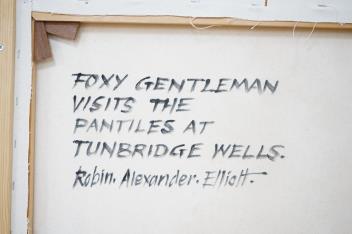 FOXY GENTLEMAN
VISITS THE
PANTILES AT
TUNBRIDGE WELLS.
Robin. Alexander. Elliott.